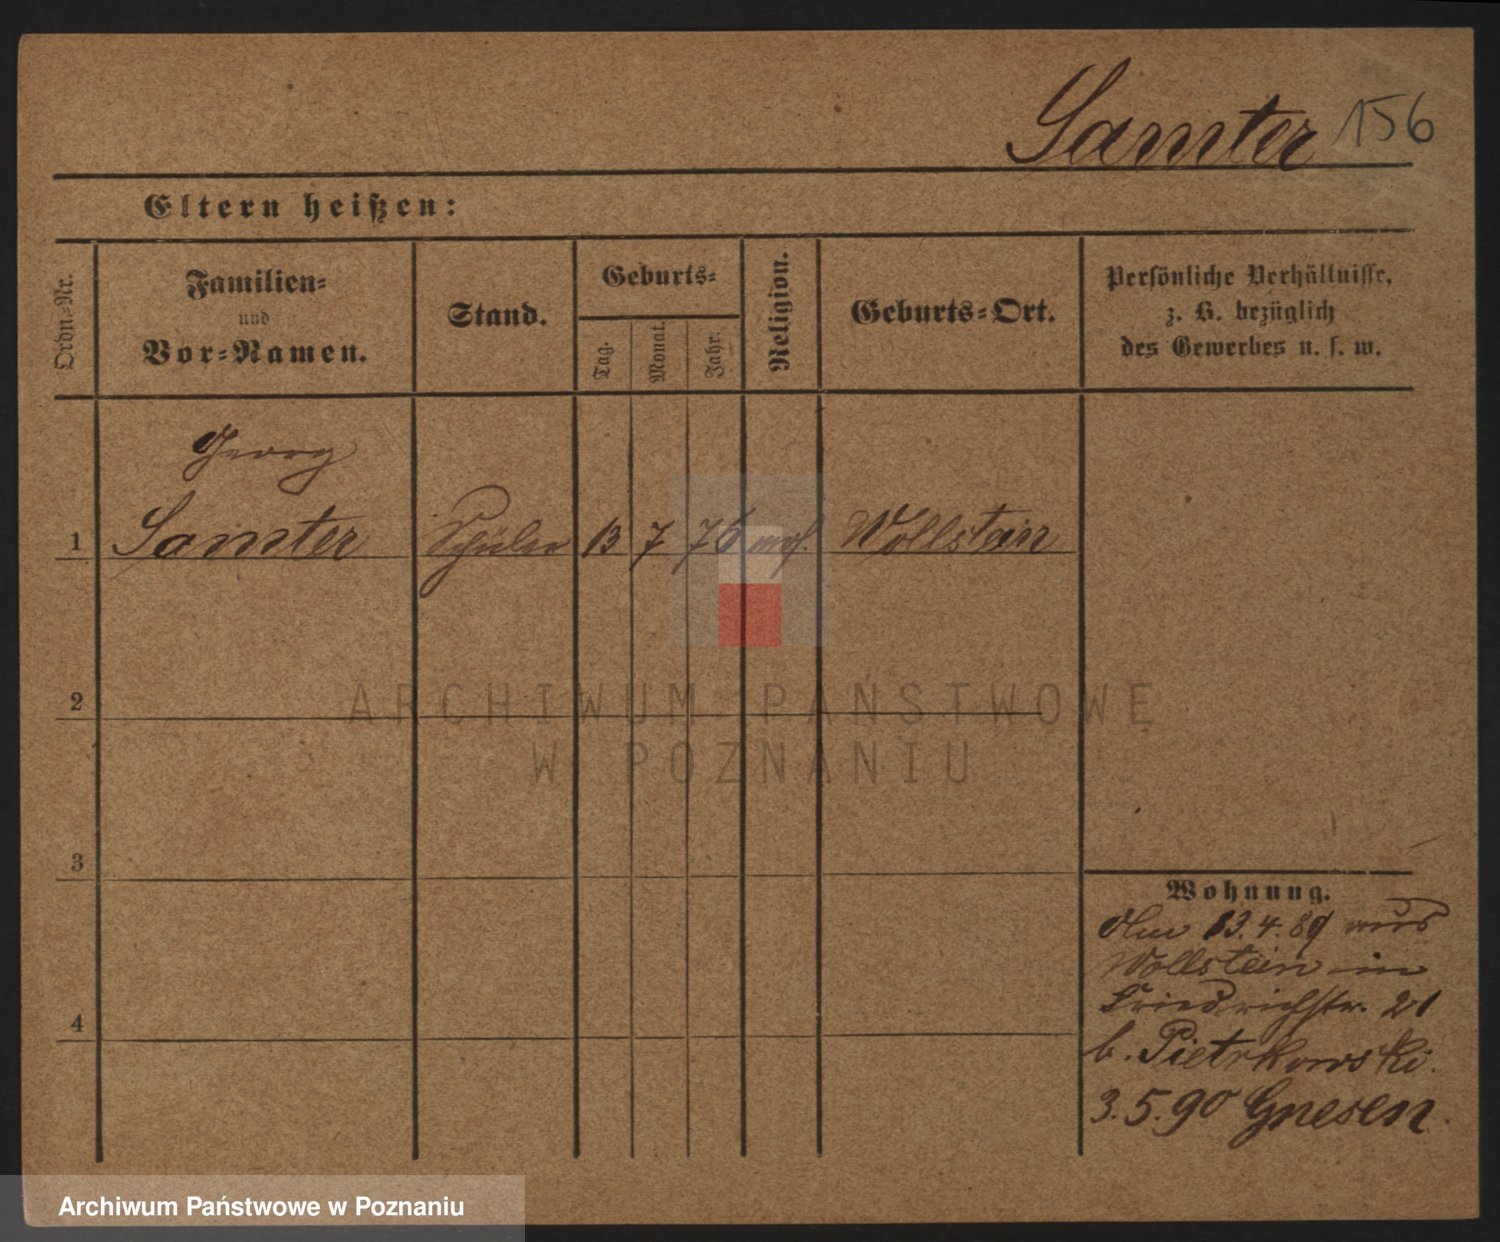 Samter 156
Eltern heißen:
Ordn.-Nr.
Familien-
und
Vor-Namen.
Stand.
Geburts-
Tag.
Monat.
Jahr.
Religion.
Geburts-Ort.
Persönliche Verhältnisse,
z. B. bezüglich
des Gewerbes u. s. w.
Georg
1 Samter Schüler 13 7 76 mos. Wollstein
2
3
4
Wohnung.
Am 13.4.89 aus
Wollstein in
Friedrichstr. 21
b. Pietrkowski.
3.5.90 Gnesen.
ARCHIWUM PAŃSTWOWE
W POZNANIU
Archiwum Państwowe w Poznaniu